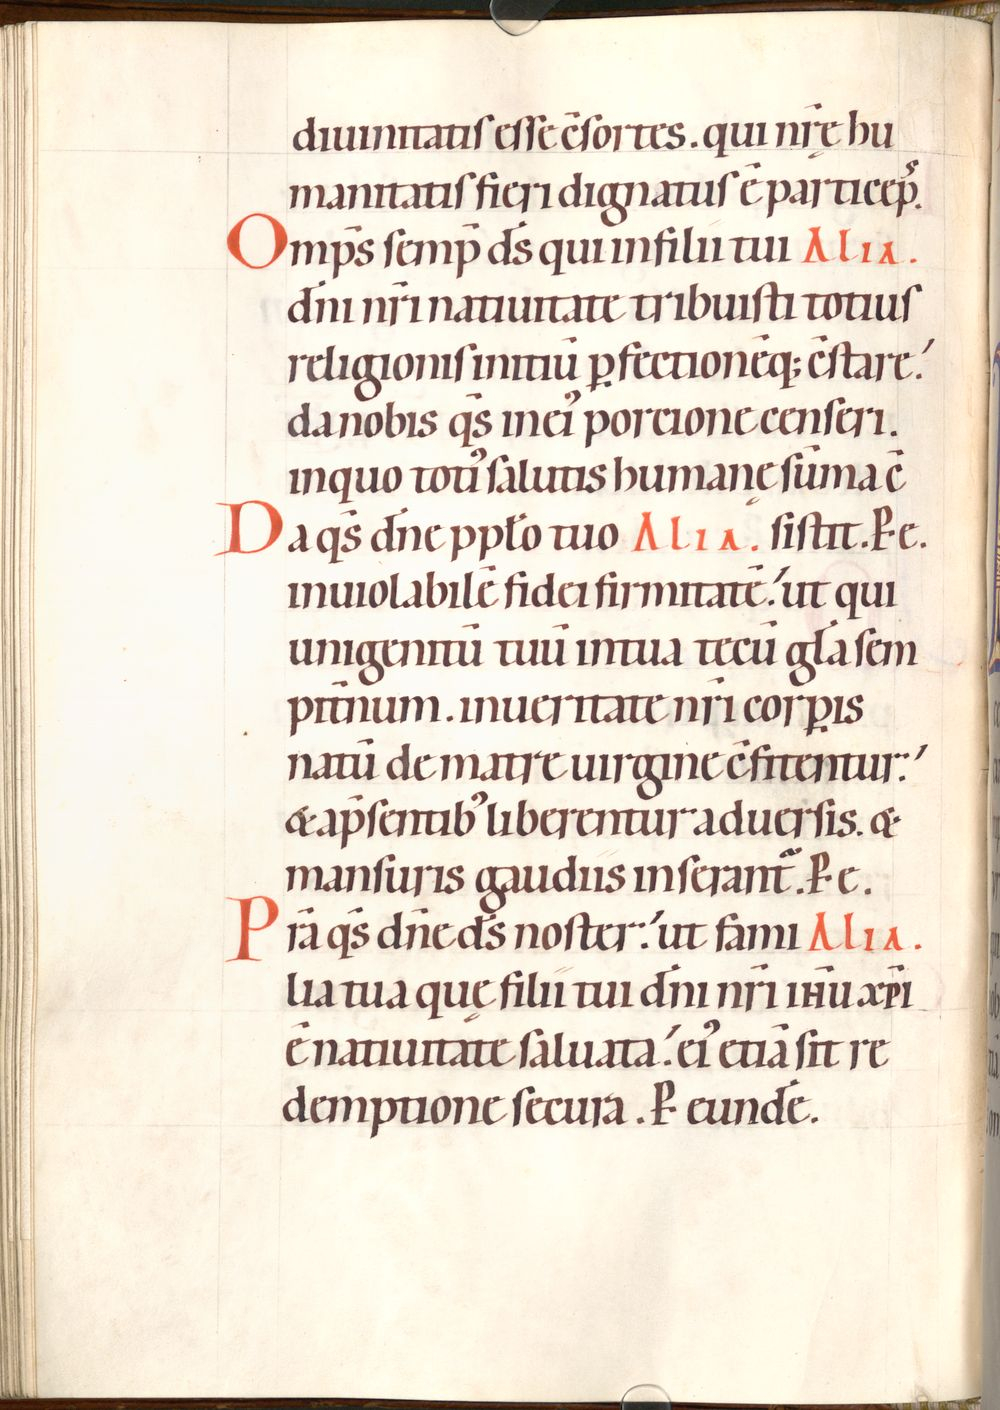 diuinitatis esse c̄sortes. qui nr̄ę hu
manitatis fieri dignatus ē particep̄ˢ.
Omp̄s semp̄ ds̄ qui in filii tui Alia.
dn̄i nr̄i natiuitate tribuisti totius
religionis initiū ꝑfectionēq; c̄stare!
da nobis qs̄ in ei᾽ portione censeri.
in quo toti᾽ salutis humanę sūma c̄
Da qs̄ dn̄e pplo tuo Alia. sistit. P e.
inuiolabilē fidei firmitatē! ut qui
unigenitū tuū in tua tecū gl̄a sem
pitn̄um. in ueritate nr̄i corꝑis
natū de matre uirgine c̄fitentur!
& a p̄sentib᾽ liberentur aduersis. &
mansuris gaudiis inserant᷑. P e.
Prā qs̄ dn̄e ds̄ noster! ut fami Alia.
lia tua quę filii tui dn̄i nr̄i ih̄u xp̄i
ē natiuitate saluata! ei᾽ etiā sit re
demptione secura. P eundē.